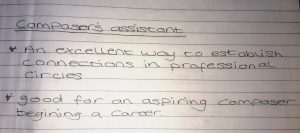 Composer's assistant
* An excellent way to establish
connections in professional
circles
* good for an aspiring composer
begining a career.